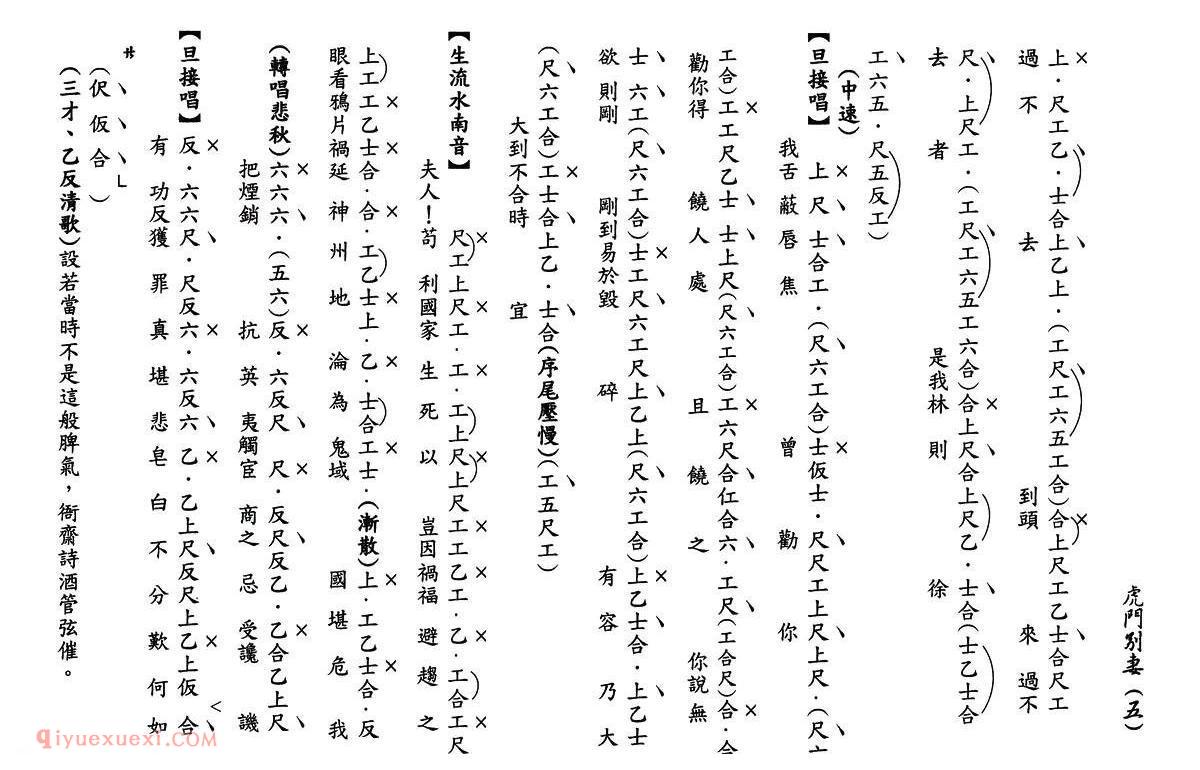 虎門別妻（五）
上．尺工乙．士合上乙上．（工尺工六五工合）合上尺工乙士合尺工
過不去到頭來過不
尺．上尺工．（工尺工六五工六合）合上尺合上尺乙．士合（士乙士合
去者是我林則徐
工六五．尺五反工）
（中速）
【旦接唱】上尺士合工．（尺六工合）士仮士．尺尺工上尺上尺．（尺六
我舌蔽唇焦曾勸你
工合）工工尺乙士士上尺（尺六工合）工六尺合仜合六．工尺（工合尺）合．合
勸你得饒人處且饒之你說無
士六工（尺六工合）士工尺六工尺上乙上（尺六工合）上乙士合．上乙士
欲則剛剛到易於毀碎有容乃大
（尺六工合）工士合上乙．士合（序尾壓慢）（工五尺工）
大到不合時宜
【生流水南音】尺工上尺工．工．工上尺上尺工工乙工．乙．工合工尺
夫人！苟利國家生死以豈因禍福避趨之
上工工乙士合．合．工乙士上．乙．士合工士．（漸散）上．工乙士合．反
眼看鴉片禍延神州地淪為鬼域國堪危我
（轉唱悲秋）六六六．（五六）反．六反尺尺．反尺反乙．乙合乙上尺
把煙銷抗英夷觸宦商之忌受讒譏
【旦接唱】反．六六尺．尺反六．六反六乙．乙上尺反尺上乙上仮合
有功反獲罪真堪悲皂白不分歎何如
（伬仮合）
（三才、乙反清歌）設若當時不是這般脾氣，衙齋詩酒管弦催。
qiyuexuexi.COM